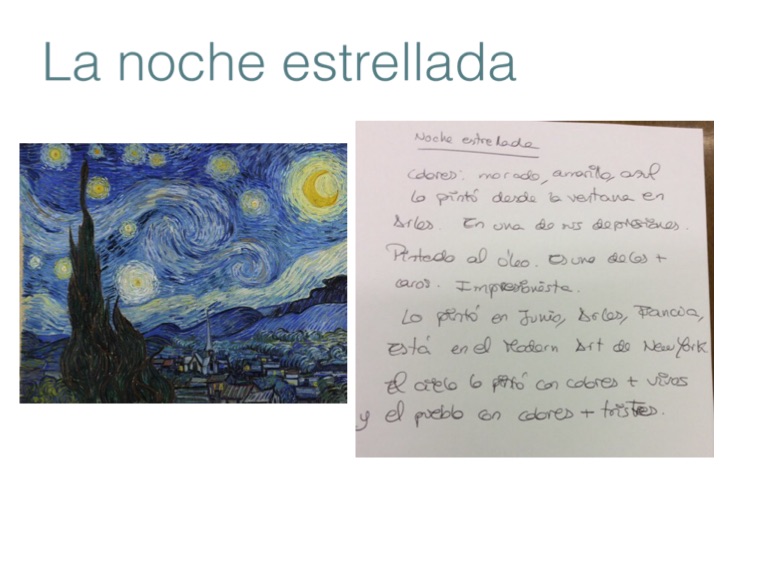 La noche estrellada
Noche estrellada
Colores: morado, amarillo, azul
Lo pintó desde la ventana en
Arles. En una de sus depresiones.
Pintado al óleo. Es uno de los +
caros. Impresionista.
Lo pintó en Junio, Arles, Francia,
Está en el Modern Art de New York
El cielo lo pintó con colores + vivos
y el pueblo con colores + tristes.